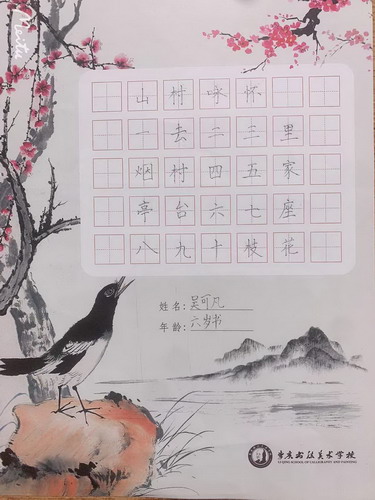 山村咏怀
一去二三里
烟村四五家
亭台六七座
八九十枝花
姓名：吴可凡
年龄：六岁书
书法美术学校